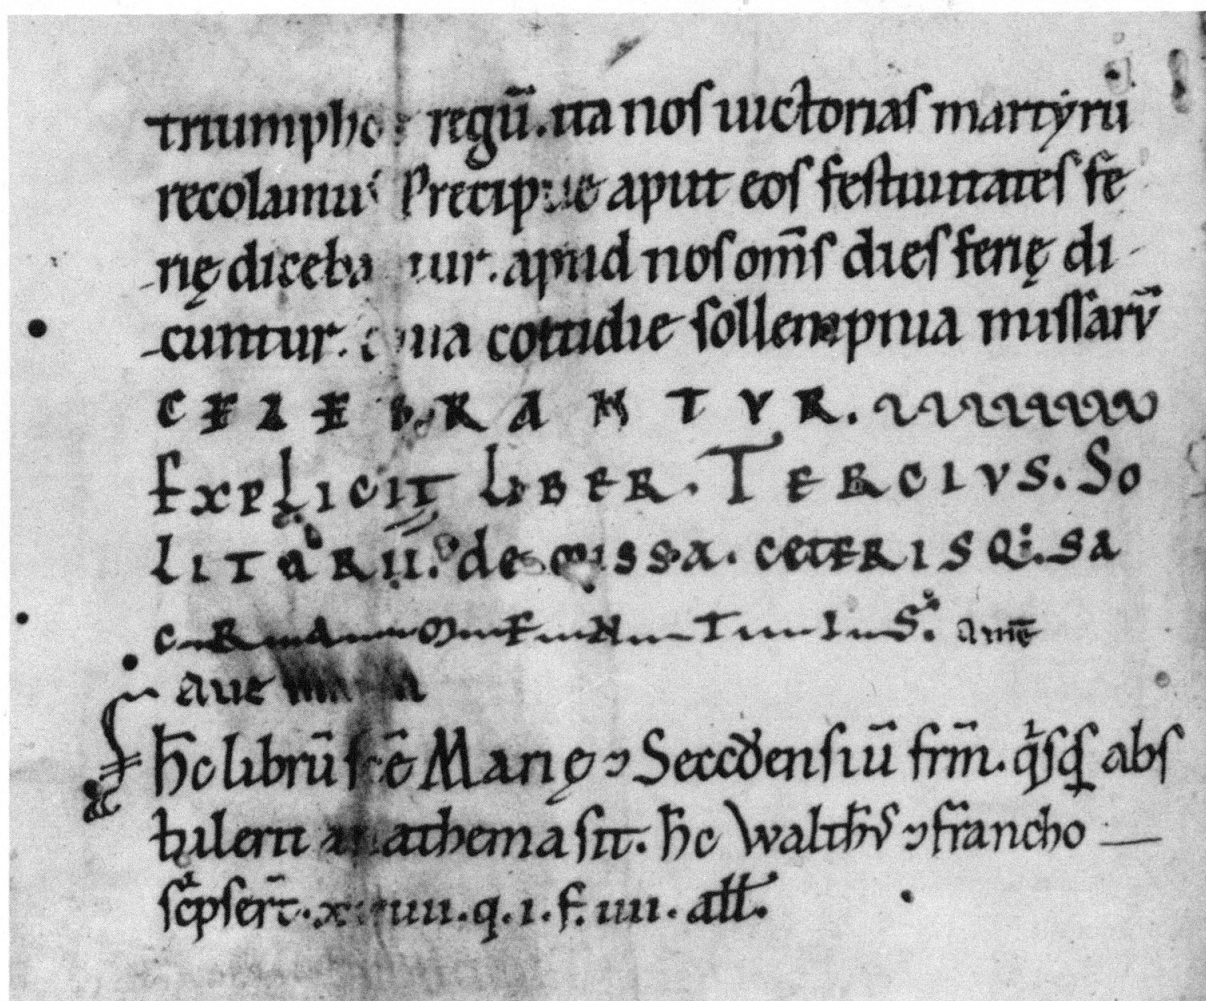 triumphos regū. ita nos uictorias martyrū
recolamus Precipue aput eos festiuitates fe
rię dicebantur. apud nos om̄s dies ferię di
cuntur. quia cottidie sollempnia missarū
CELEBRANTVR.
EXPLICIT LIBER. TERCIVS. SO
LITARII. de missa. CETERISQ; SA
CRAMENTIS. amē
aue maria
h̄c librū scē Marię ⁊ Seccoensiū frm̄. qͥsqͥs abs
tulerit anathema sit. h̄c Walth̄ ⁊ francho
sc̄pser̄t. q. i. f. iiii. all̄.